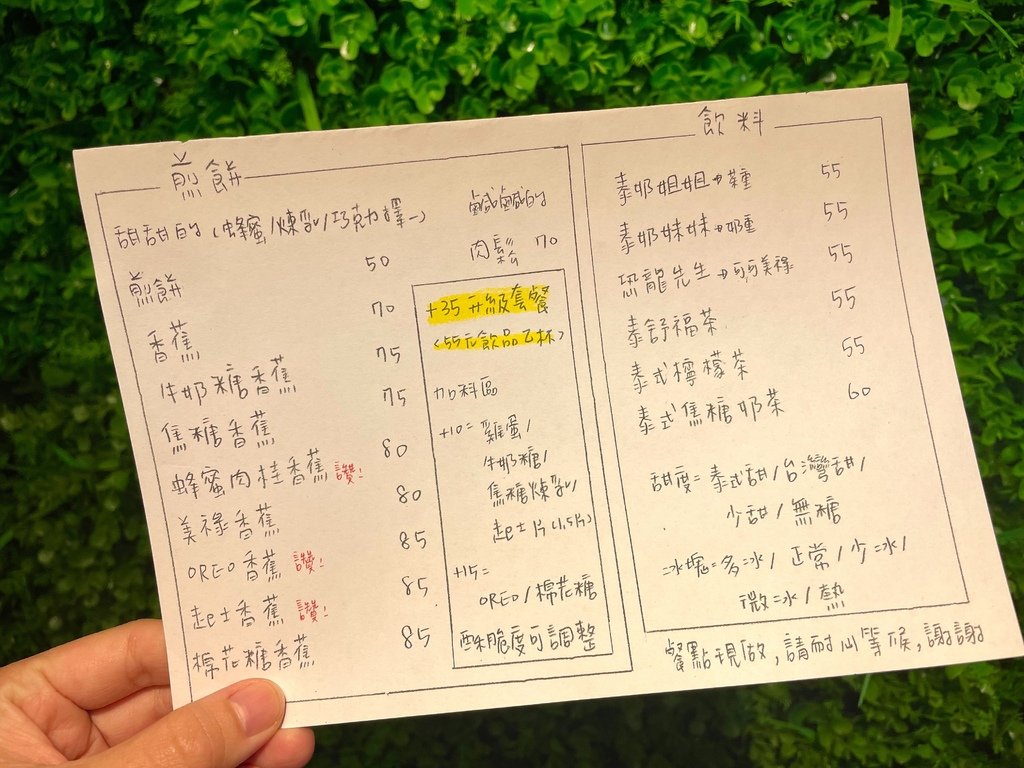 煎餅
甜甜的(蜂蜜/煉乳/巧克力擇一)
煎餅 50
香蕉 70
牛奶糖香蕉 75
焦糖香蕉 75
蜂蜜肉桂香蕉 讚! 80
美祿香蕉 80
OREO香蕉 讚! 85
起士香蕉 讚! 85
棉花糖香蕉 85
鹹鹹的
肉鬆 70
+35升級套餐
<55元飲品乙杯>
加料區
+10=雞蛋/
牛奶糖/
焦糖煉乳/
起士片(1.5片)
+15=
OREO/棉花糖
酥脆度可調整
飲料
泰奶姐姐→茶重 55
泰奶妹妹→奶重 55
恐龍先生→可可美祿 55
泰舒福茶 55
泰式檸檬茶 55
泰式焦糖奶茶 60
甜度=泰式甜/台灣甜/
少甜/無糖
冰塊=多冰/正常/少冰/
微冰/熱
餐點現做,請耐心等候,謝謝